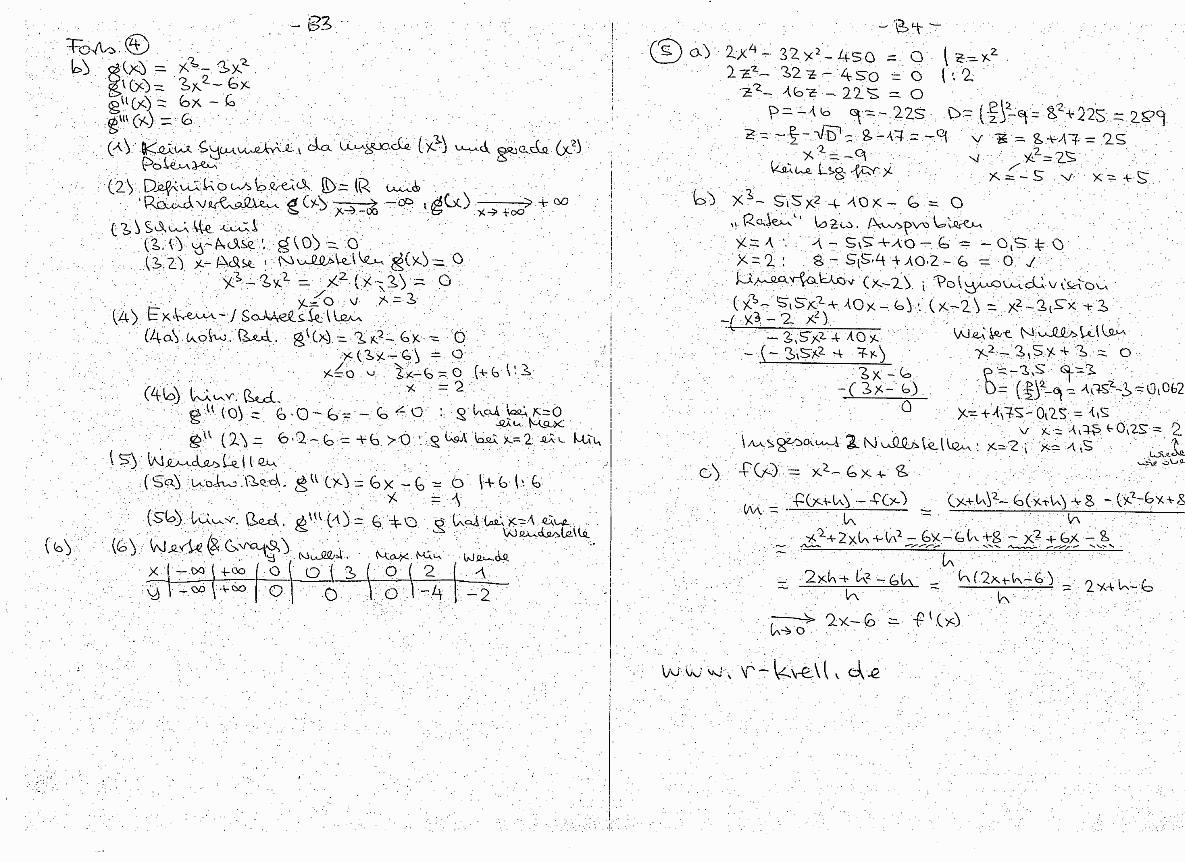 - B3
Forts. ④
b) g(x) = x³ - 3x²
g'(x) = 3x² - 6x
g''(x) = 6x - 6
g'''(x) = 6
(1) Keine Symmetrie, da ungerade (x³) und gerade (x²)
Potenzen
(2) Definitionsbereich D = ℝ und
Randverhalten g(x) →x→-∞ -∞, g(x) →x→+∞ +∞
(3) Schnitte mit
(3.1) y-Achse: g(0) = 0
(3.2) x-Achse, Nullstellen g(x) = 0
x³ - 3x² = x²(x-3) = 0
x=0 v x=3
(4) Extrem-/Sattelstellen
(4a) notw. Bed. g'(x) = 3x² - 6x = 0
x(3x-6) = 0
x=0 v 3x-6 = 0 |+6 |:3
x = 2
(4b) hinr. Bed.
g''(0) = 6·0-6 = -6 < 0 : g hat bei x=0
ein Max
g''(2) = 6·2-6 = +6 > 0 : g hat bei x=2 ein Min
(5) Wendestellen
(5a) notw. Bed. g''(x) = 6x - 6 = 0 |+6 |:6
x = 1
(5b) hinr. Bed. g'''(1) = 6 ≠ 0 g hat bei x=1 eine
Wendestelle
(6) (6) Werte (& Graph)
y Nullst. Max Min Wende
x | -∞ | +∞ | 0 | 0 | 3 | 0 | 2 | 1
y | -∞ | +∞ | 0 | 0 | 0 | -4 | -2
- B4 -
⑤ a) 2x⁴ - 32x² - 450 = 0 | z=x²
2z² - 32z - 450 = 0 |:2
z² - 16z - 225 = 0
p=-16 q=-225 D=(p/2)²-q = 8²+225 = 289
z = -p/2 - √D = 8-17 = -9 v z = 8+17 = 25
x² = -9 v x² = 25
keine Lsg für x x = -5 v x = +5
b) x³ - 5,5x² + 10x - 6 = 0
„Raten" bzw. Ausprobieren
x=1: 1 - 5,5 + 10 - 6 = -0,5 ≠ 0
x=2: 8 - 5,5·4 + 10·2 - 6 = 0 ✓
Linearfaktor (x-2); Polynomdivision
(x³ - 5,5x² + 10x - 6) : (x-2) = x² - 3,5x + 3
-(x³ - 2 x²)
-3,5x² + 10x
-(-3,5x² + 7x)
3x - 6
-(3x - 6)
0
Weitere Nullstellen
x² - 3,5x + 3 = 0
p = -3,5 q = 3
D = (p/2)² - q = 1,75² - 3 = 0,062
x = +1,75 - 0,25 = 1,5
v x = 1,75 + 0,25 = 2
Insgesamt 2 Nullstellen: x=2; x=1,5
c) f(x) = x² - 6x + 8
m = (f(x+h) - f(x))/h = ((x+h)² - 6(x+h) + 8 - (x² - 6x + 8)/h
= (x² + 2xh + h² - 6x - 6h + 8 - x² + 6x - 8)/h
= (2xh + h² - 6h)/h = h(2x+h-6)/h = 2x+h-6
→h→0 2x - 6 = f'(x)
www.r-krell.de